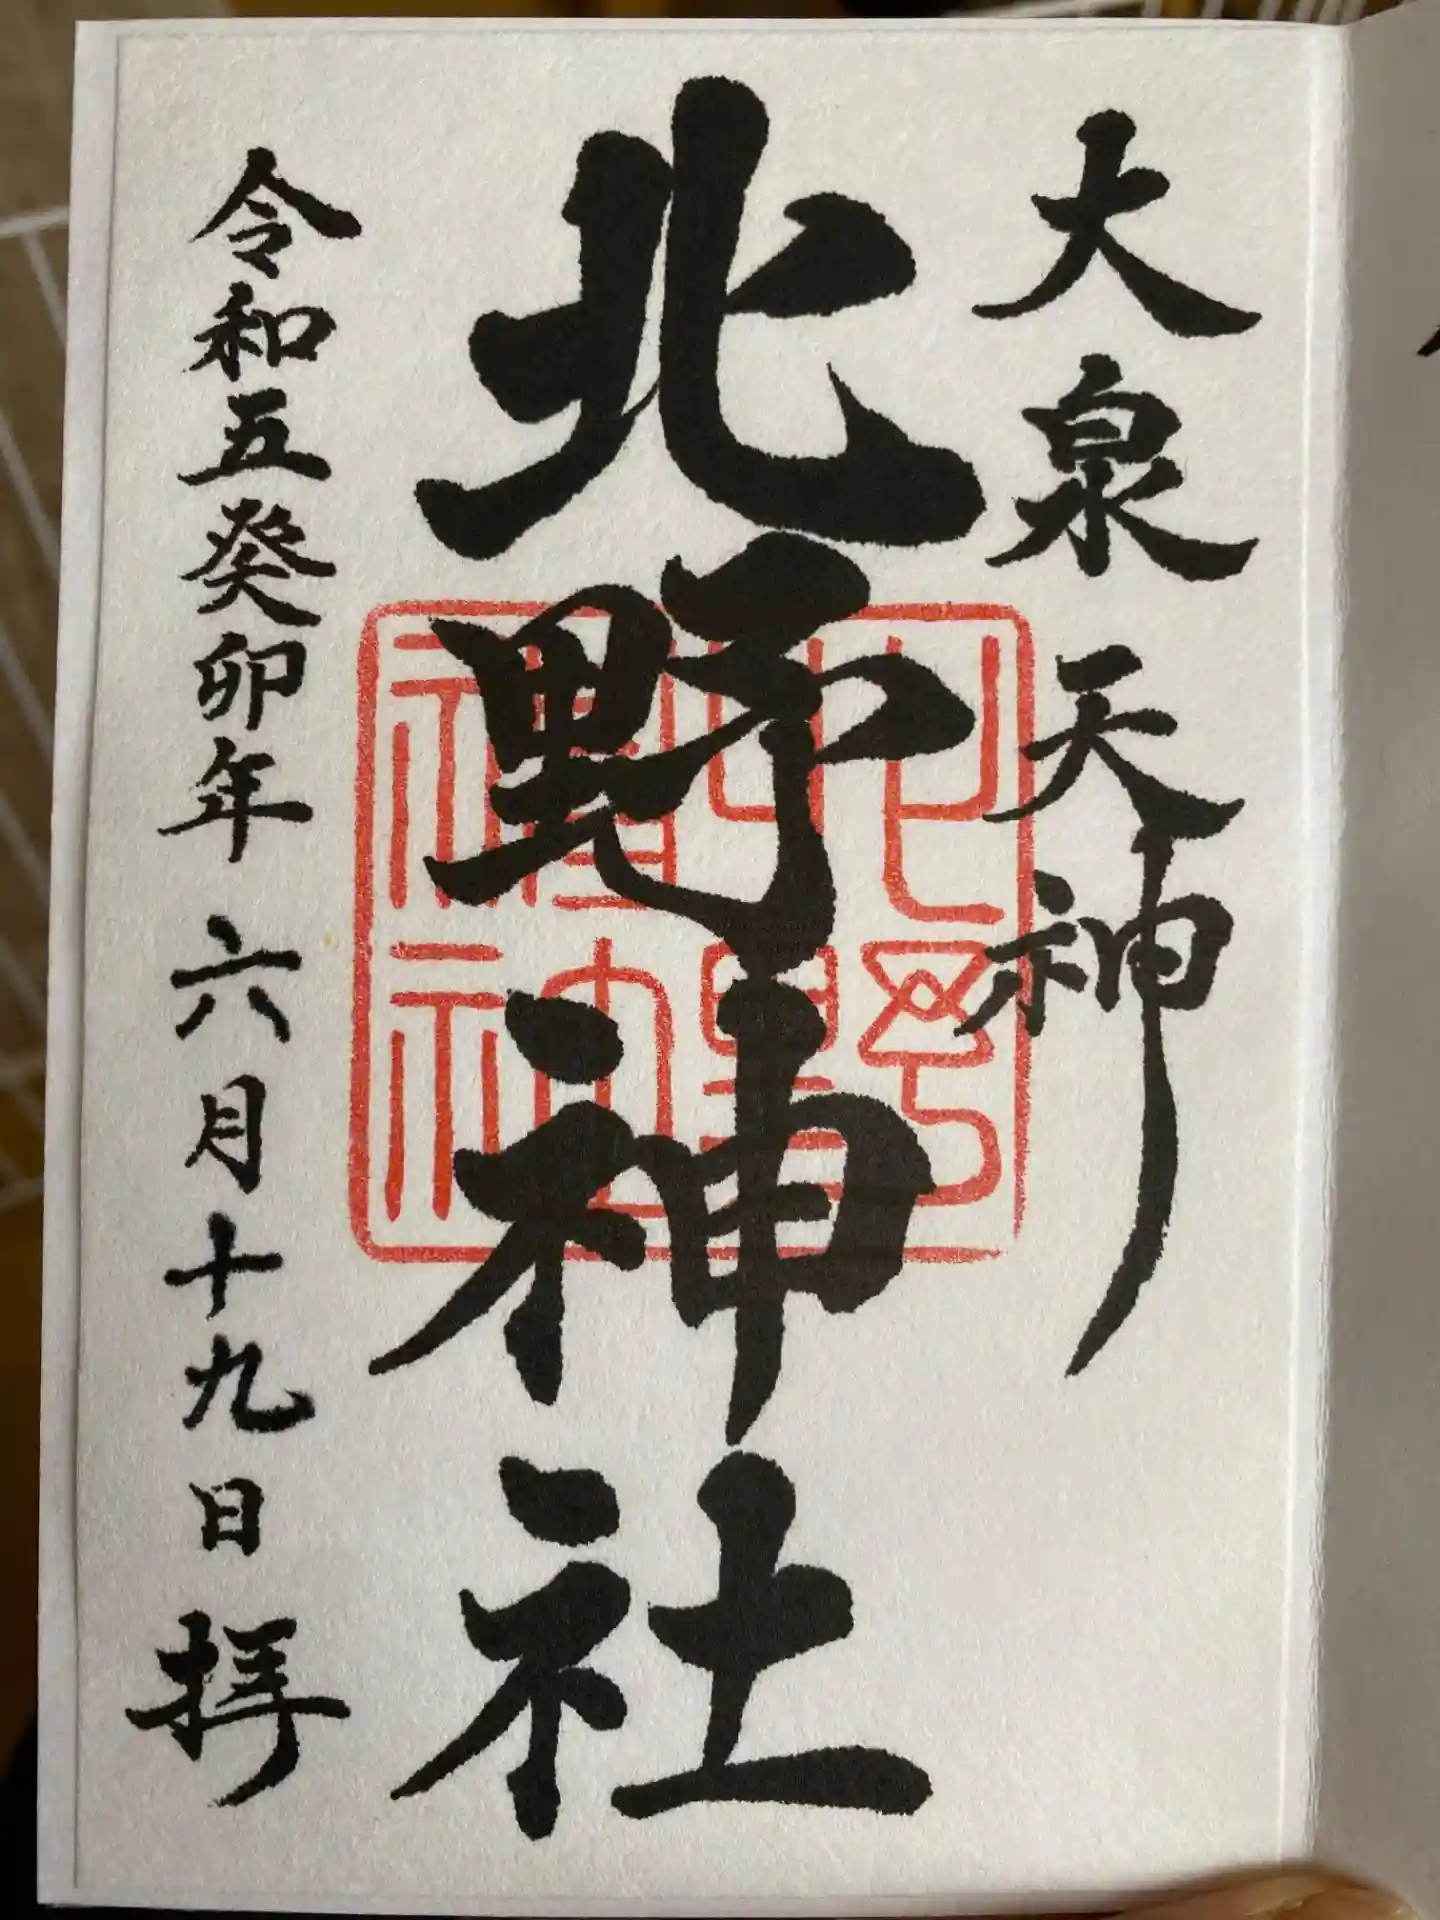 大泉天神
北野神社
北野神社
令和五癸卯年六月十九日拝